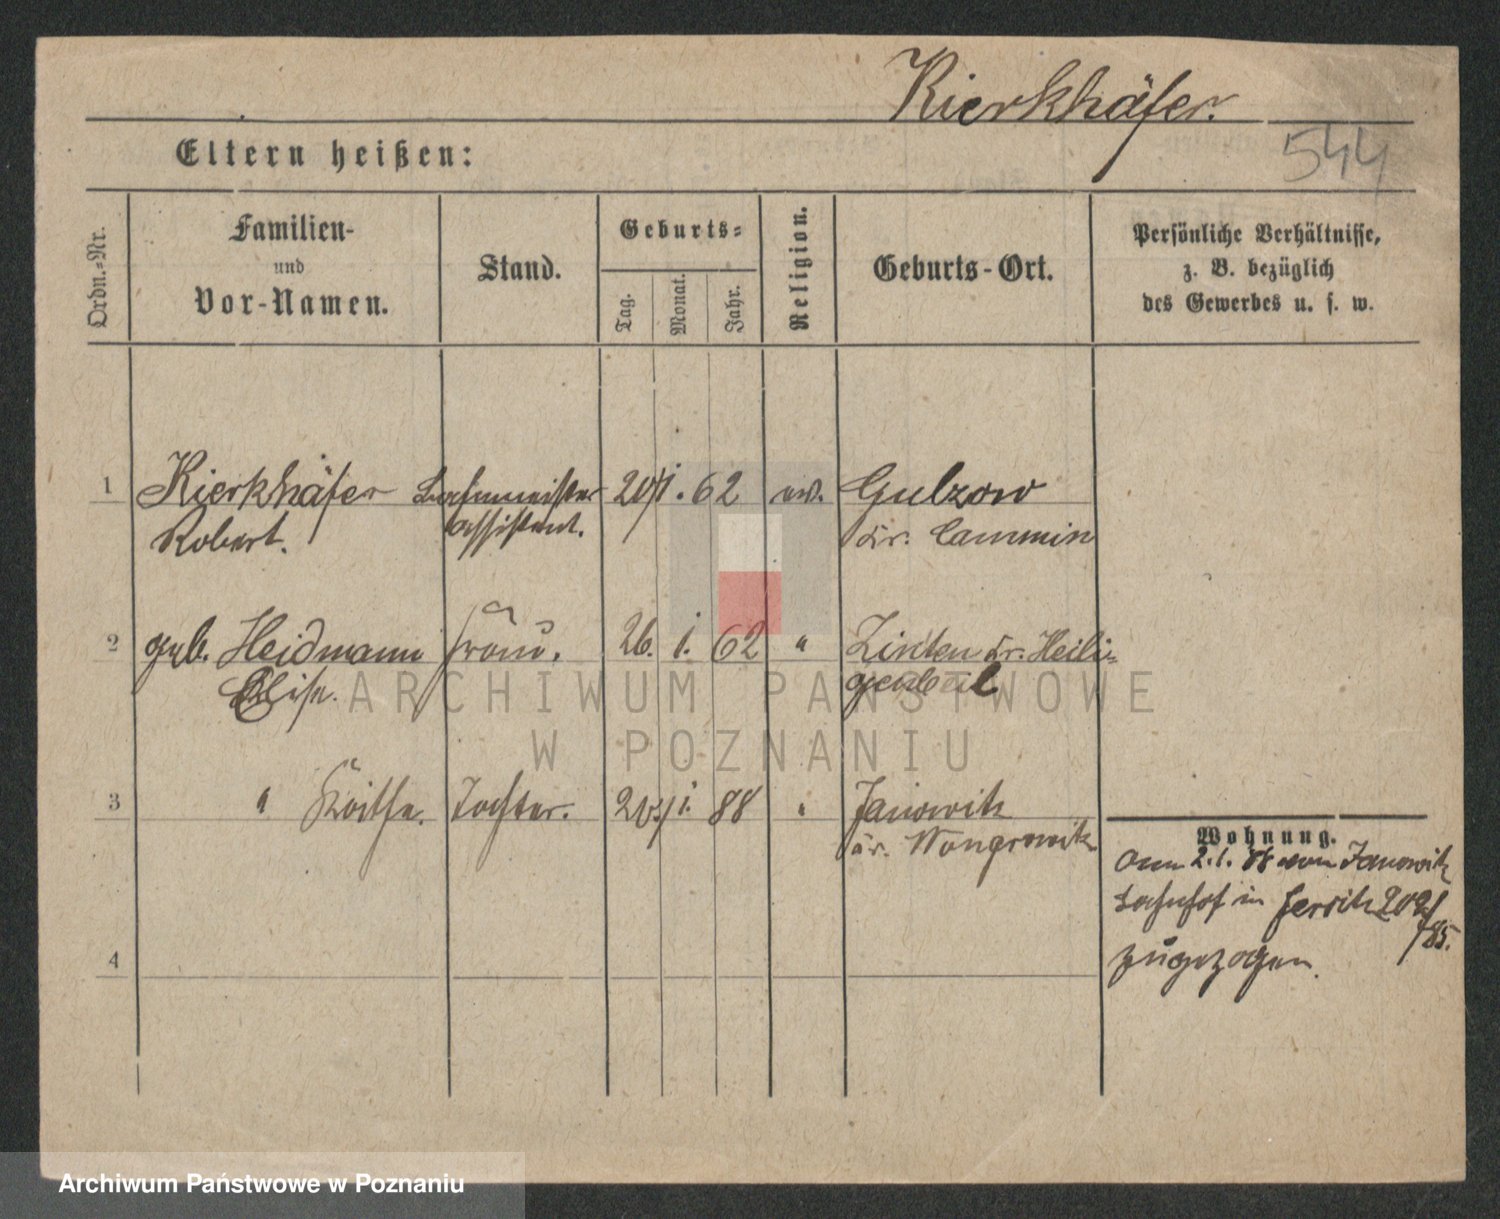 Kierkhäfer.
544
Eltern heißen:
Ordn.-Nr.
Familien-
und
Vor-Namen.
Stand.
Geburts-
Tag.
Monat.
Jahr.
Religion.
Geburts-Ort.
Persönliche Verhältnisse,
z. B. bezüglich
des Gewerbes u. s. w.
1 Kierkhäfer Bahnmeister 20/1. 62 ev. Gulzow
Robert. assistent. Kr. Cammin
2 geb. Heidmann Frau. 26. 1. 62 " Zinten Kr. Heili-
Elise. genbeil
3 " Käthe. Tochter. 1. 88 " Janowitz
Kr. Wongrowitz
Wohnung.
Am 2.1. 88 von Janowitz
Bahnhof in Jersitz 202/
785.
zugezogen.
4
ARCHIWUM PAŃSTWOWE
W POZNANIU
Archiwum Państwowe w Poznaniu